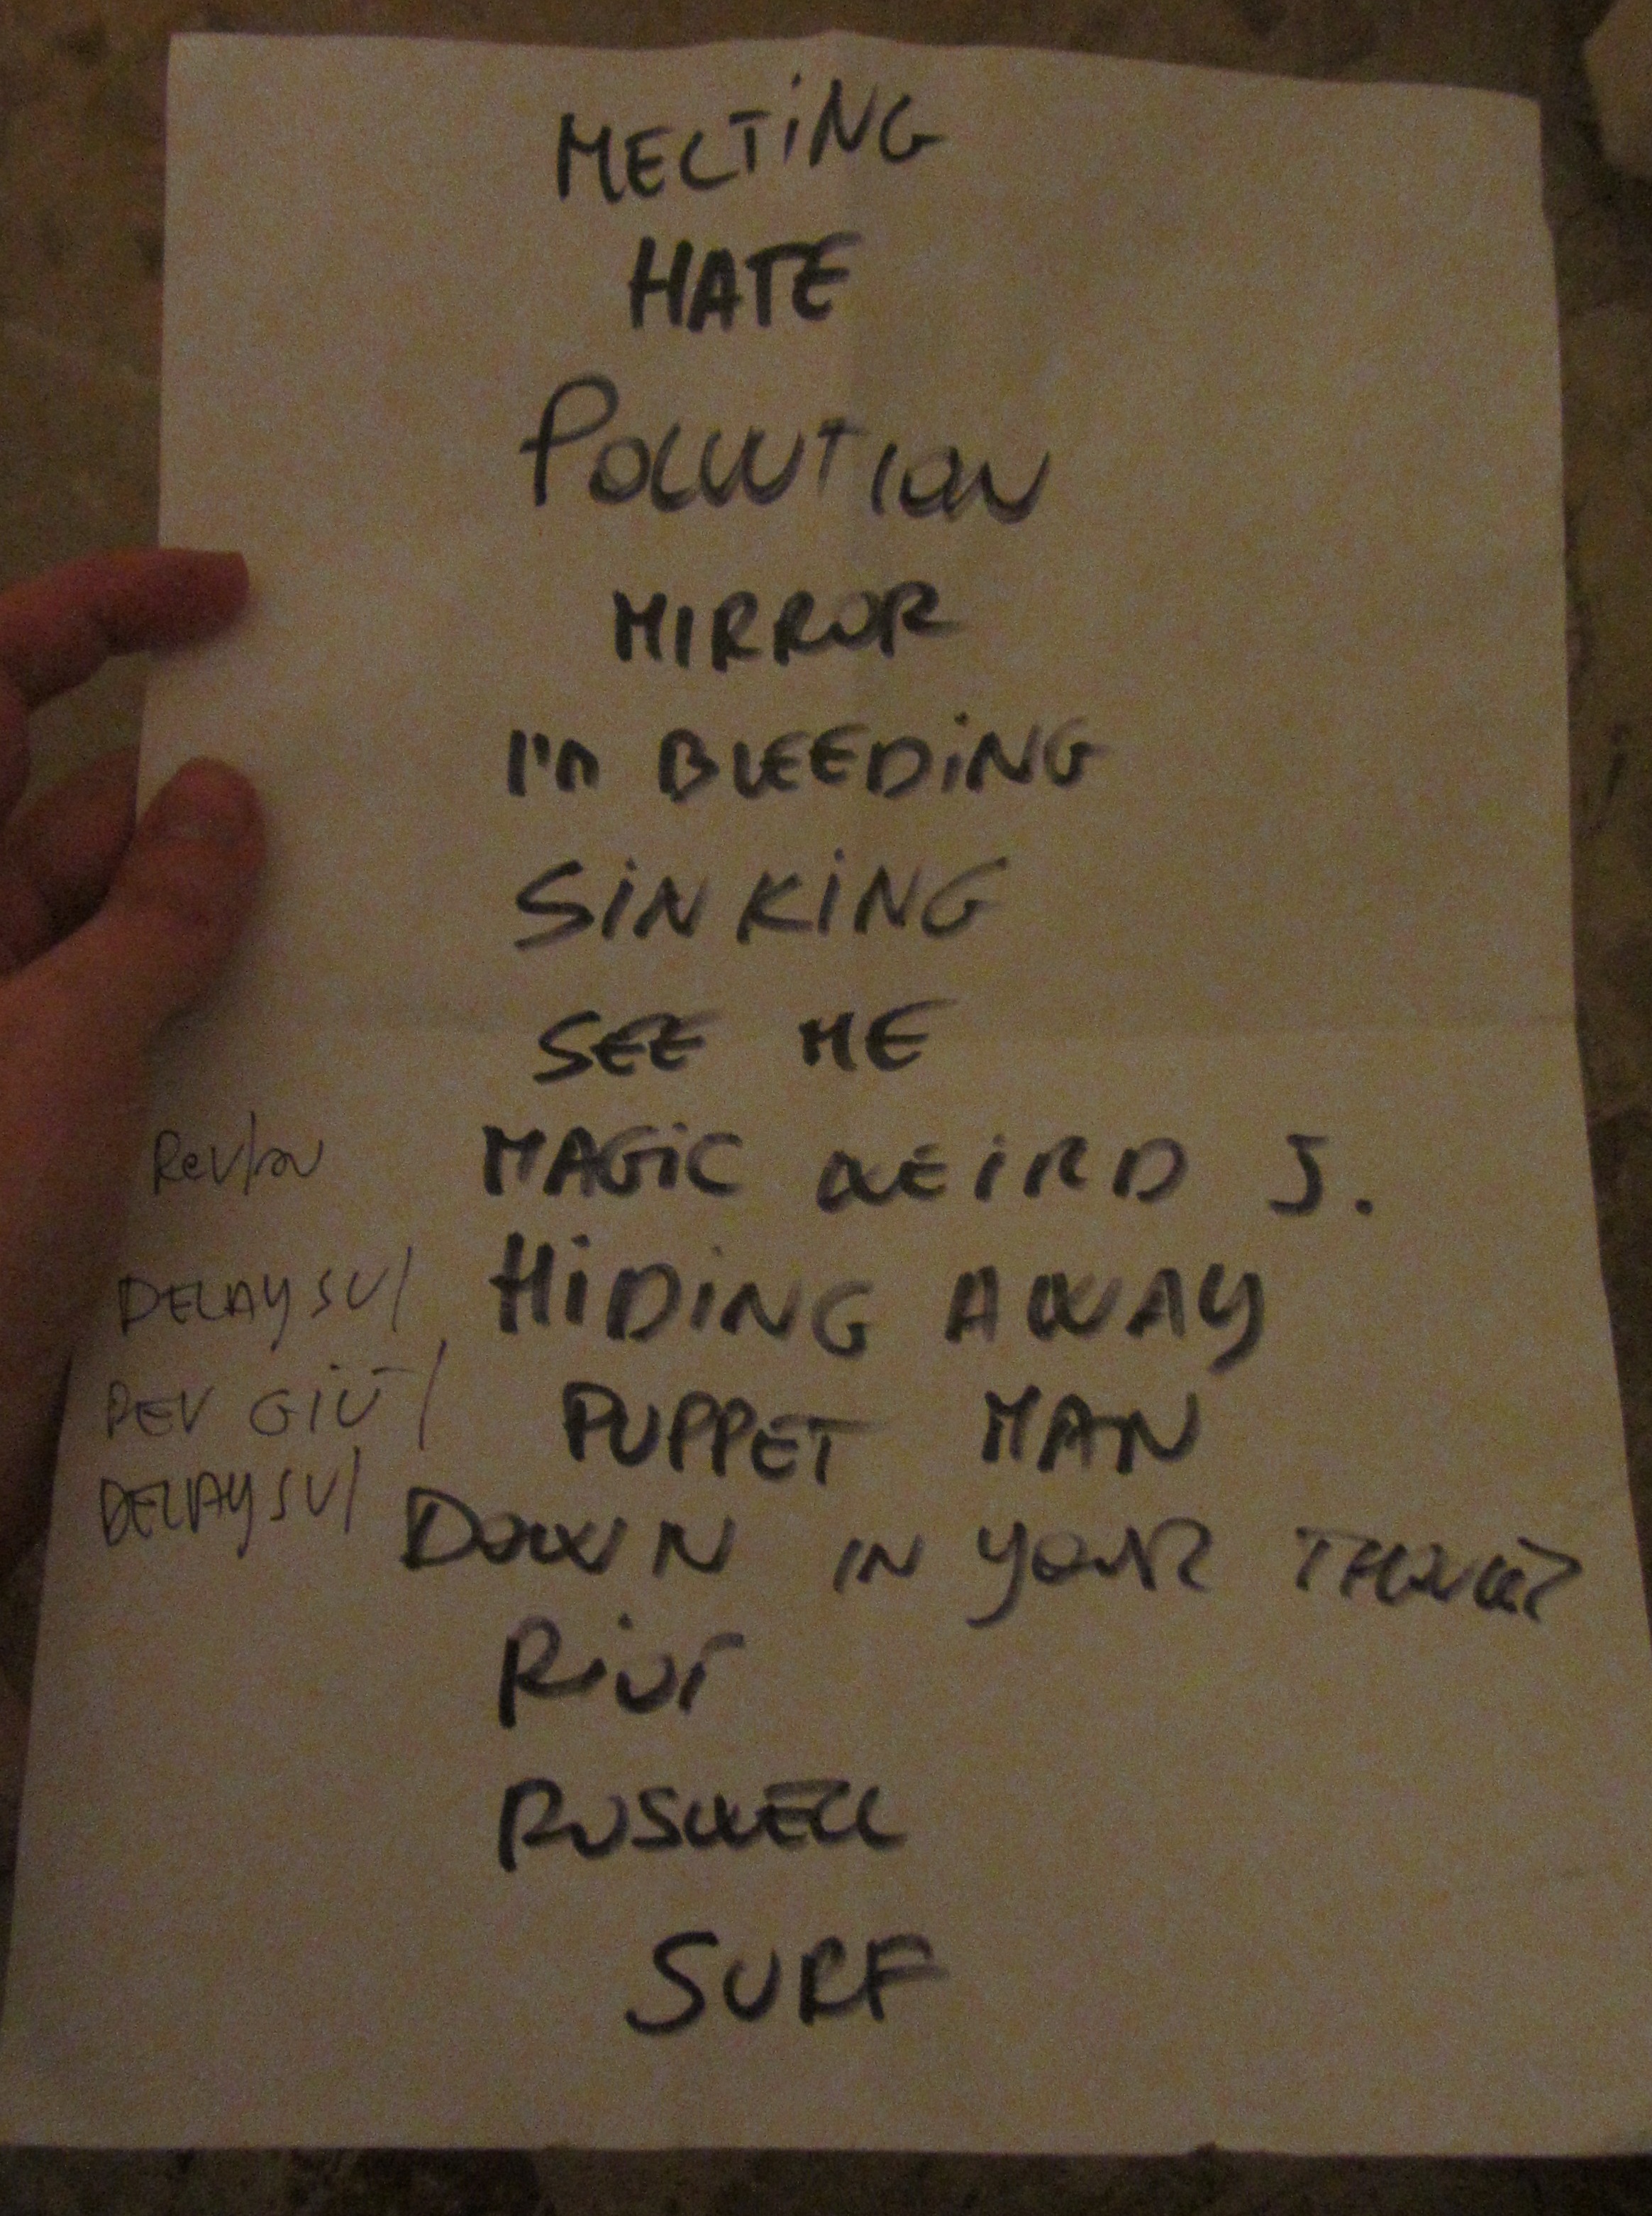 MELTiNG
HATE
POLLUTION
MIRROR
I'M BLEEDiNG
SiNKiNG
SEE ME
MAGiC WEIRD J.
DELAY SU/ HiDiNG AWAY
REV GIÙ / PUPPET MAN
DELAY SU/ DOWN IN YOUR
RiOT
ROSWELL
SURF